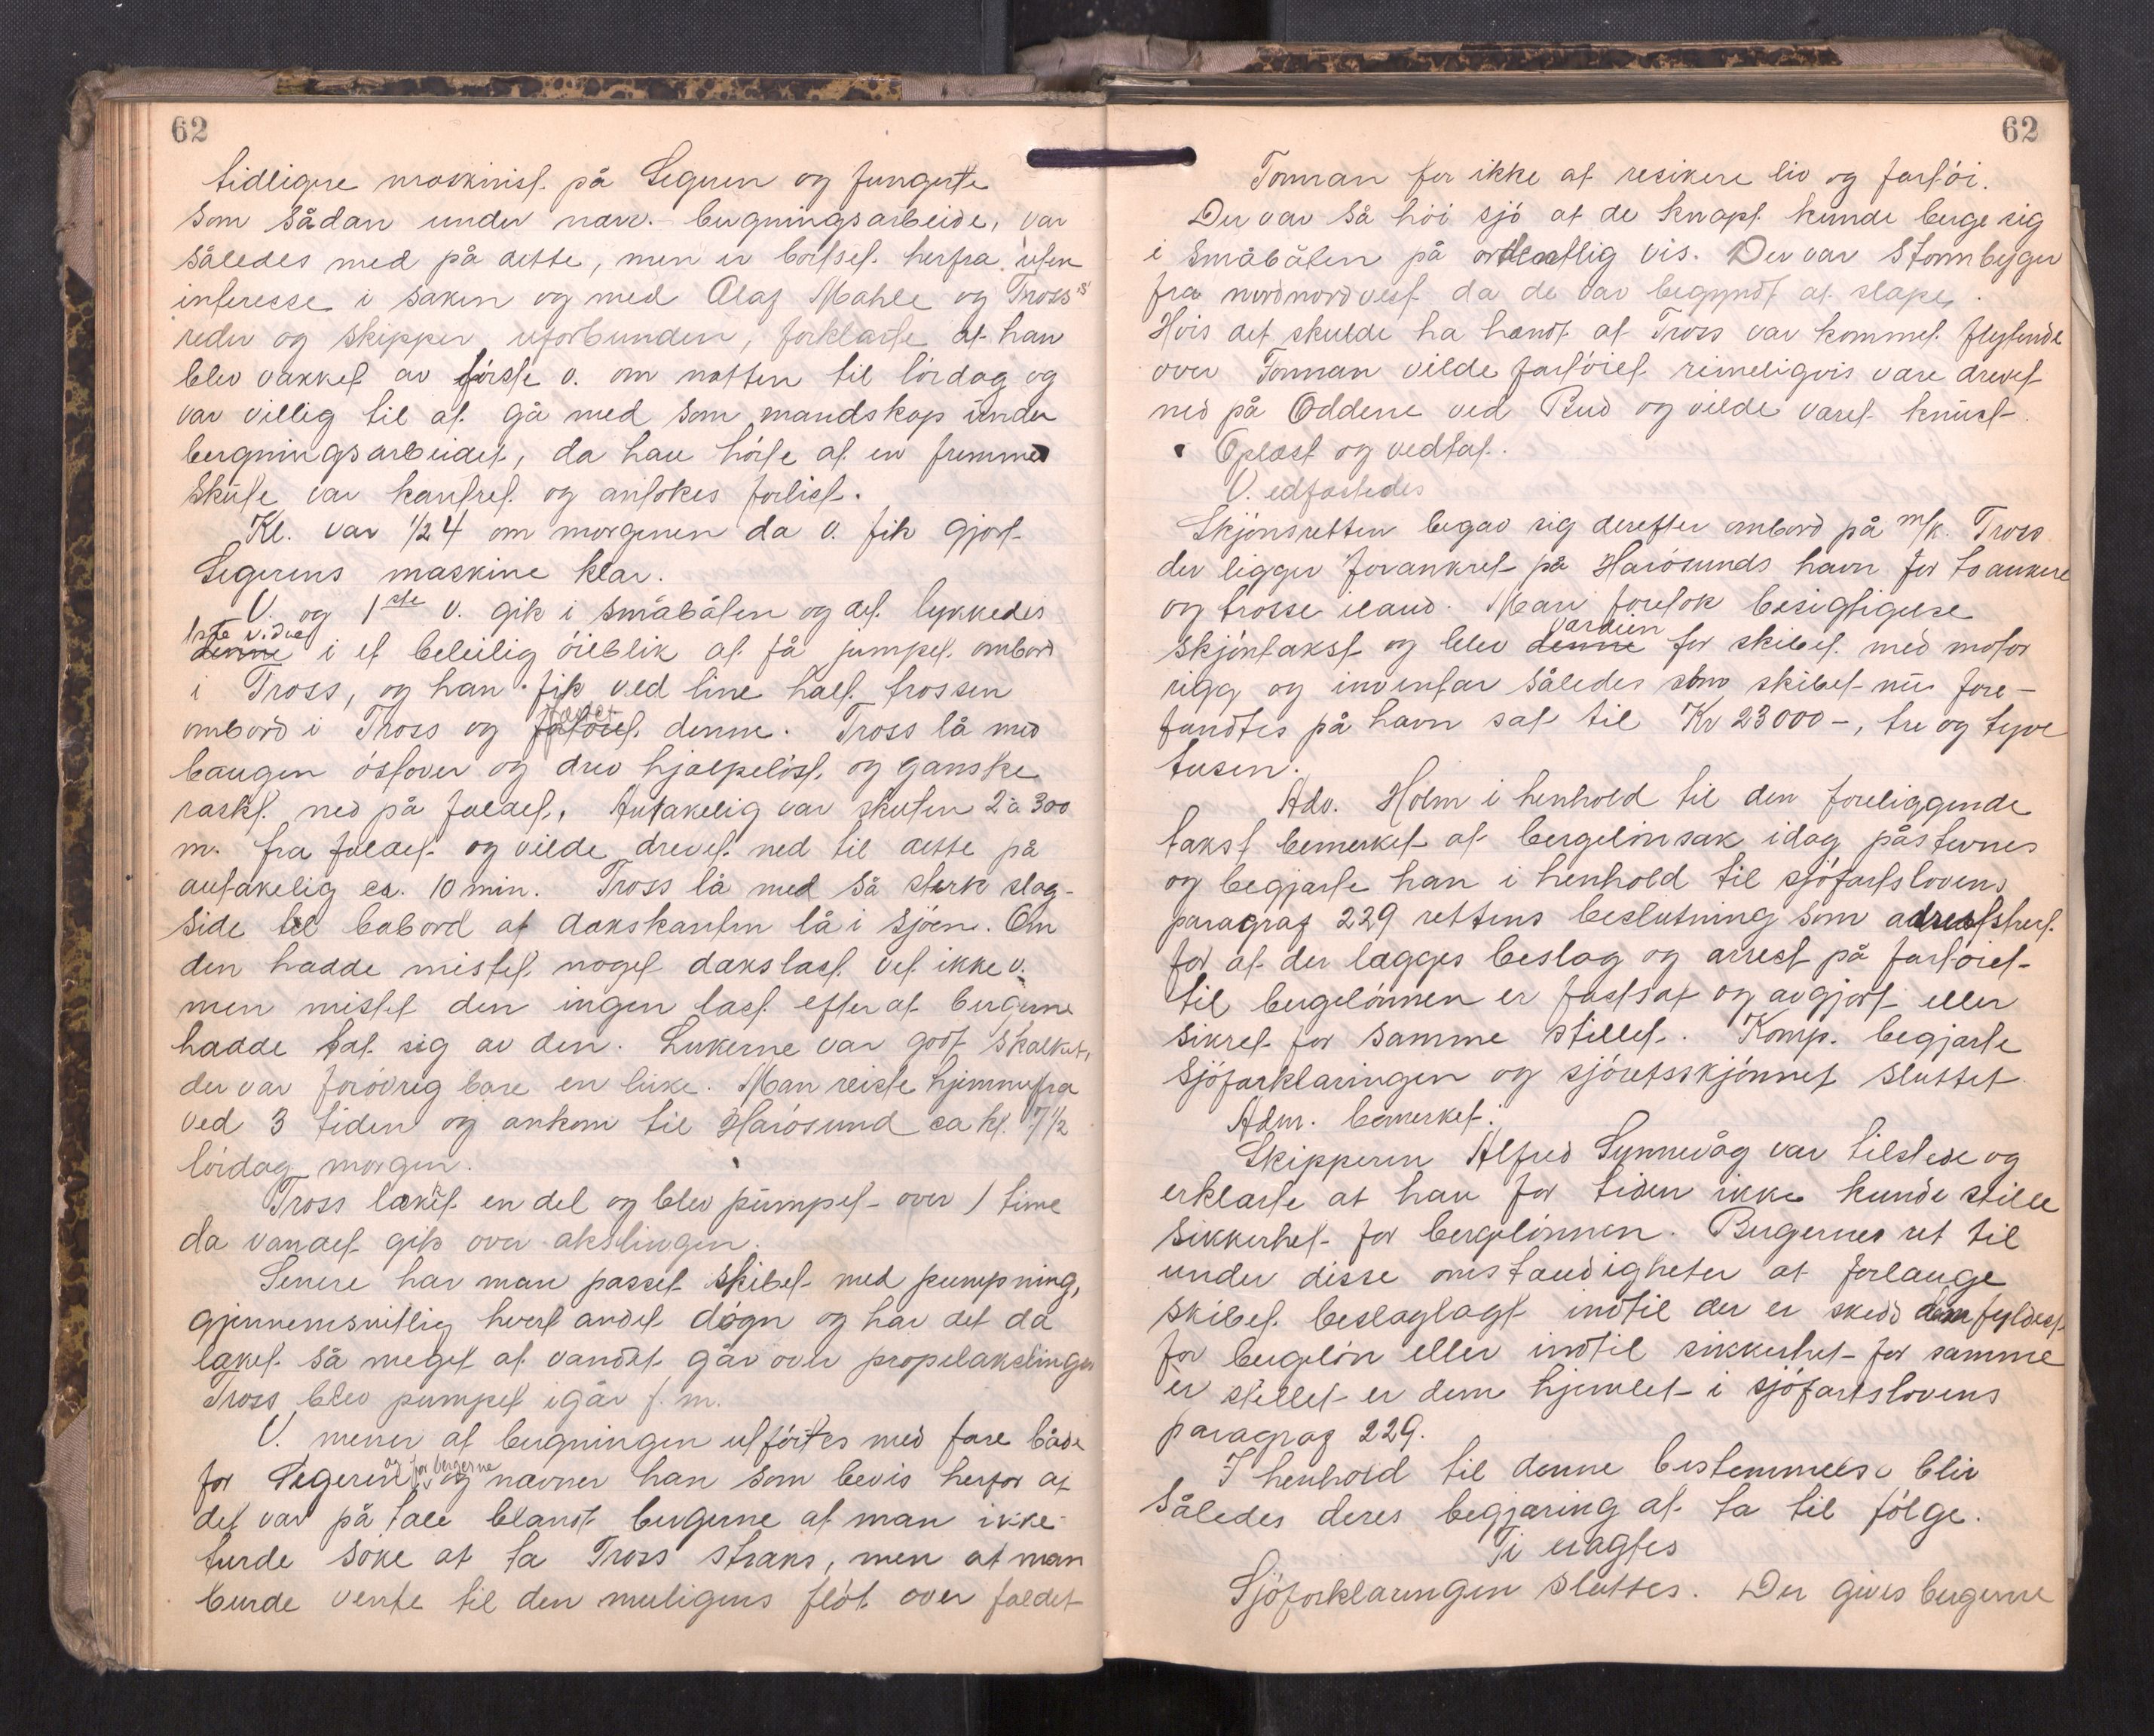 62
tidligere maskinist på Segeren og fungerte
som sådan under nærv. bergningsarbeide, var
således med på dette, men er bortset herfra uten
interesse i saken og med Olaf Mahle og Tross's
reder og skipper uforbunden, forklarte at han
blev vakket av første v. om natten til lördag og
var villig til at gå med som mandskap under
bergningsarbeidet, da han hörte at en fremmed
skute var kantret og antokes forlist.
Kl. var 1/2 4 om morgenen da v. fik gjort
Segerens maskine klar.
V. og 1ste v. gik i småbåten og det lykkedes
1ste vidne
denne i et beleilig öieblik at få jumpet ombord
i Tross, og han fik ved line halt trossen
ombord i Tross og fortöiet denne. Tross lå med
baugen östover og drev hjælpelöst og ganske
raskt ned på faldet. Antakelig var skuten 2 à 300
m. fra faldet og vilde drevet ned til dette på
antakelig ca. 10 min. Tross lå med så sterk slag-
side til babord at dækskanten lå i sjöen. Om
den hadde mistet noget dækslast vet ikke v.
men mistet den ingen last efter at bergerne
hadde tat sig av den. Lukerne var godt skalket,
der var forövrig bare en luke. Man reiste hjemmefra
ved 3 tiden og ankom til Harösund ca kl. 7 1/2
lördag morgen.
Tross lækket en del og blev pumpet over 1 time
da vandet gik over akslingen.
Senere har man passet skibet med pumpning,
gjennemsnitlig hvert andet dögn og har det da
lækket så meget at vandet går over propelakslingen
Tross blev pumpet igår f.m.
V. mener at bergningen utförtes med fare både
og for bergerne
for Segeren og nævner han som bevis herfor at
det var på tale blandt bergerne at man ikke
turde söke at ta Tross straks, men at man
burde vente til den muligens flöt over faldet
62
Tonnan for ikke at resikere liv og fartöi.
Der var så höi sjö at de knapt kunde berge sig
i småbåten på ordentlig vis. Der var stormbyger
fra nordnordvest da de var begyndt at slæpe.
Hvis det skulde ha hændt at Tross var kommet flytende
over Tonnan vilde fartöiet rimeligvis være drevet
ned på Oddene ved Bud og vilde været knust.
Oplæst og vedtat.
V. edfæstedes
Skjönsretten begav sig derefter ombord på m/k. Tross
der ligger forankret på Harösunds havn for to ankere
og trosse iland. Man foretok besigtigelse
værdien
skjöntakst og blev denne for skibet med motor
rigg og inventar således som skibet nu fore-
fandtes på havn sat til Kr 23000-, tre og tyve
tusen.
Adv. Holm i henhold til den foreliggende
takst bemerket at bergelönsak idag påstevnes
og begjærte han i henhold til sjöfartslovens
paragraf 229 rettens beslutning som
for at der lægges beslag og arrest på fartöiet
til bergelönnen er fastsat og avgjort eller
sikret for samme stillet. Komp. begjærte
sjöforklaringen og sjöretsskjönnet sluttet.
Adm. bemerket:
Skipperen Alfred Synnevåg var tilstede og
erklærte at han for tiden ikke kunde stille
sikkerhet for bergelönnen. Bergernes ret til
under disse omstændigheter at forlange
skibet beslaglagt indtil der er skedd dem fyldest
for bergelön eller indtil sikkerhet for samme
er stillet er dem hjemlet i sjöfartslovens
paragraf 229.
I henhold til denne bestemmelse bliv
således deres begjæring at ta til fölge.
Ti eragtes
Sjöforklaringen sluttes. Der gives bergerne